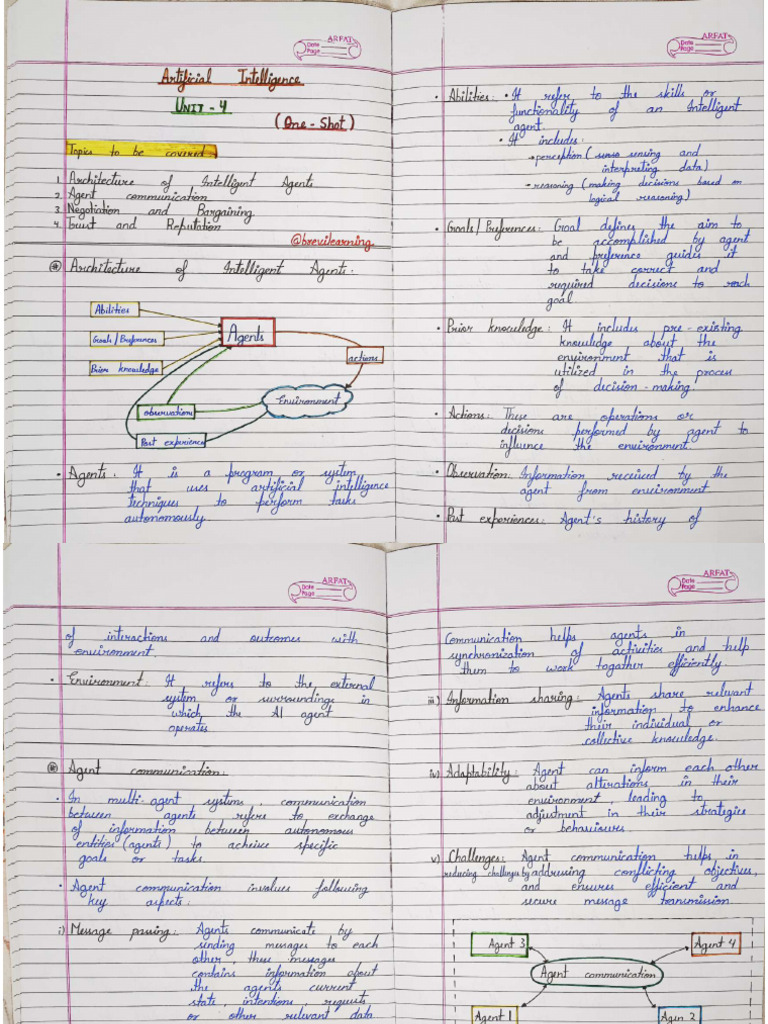 ARFAT
Date
Page
Artificial Intelligence
UNIT - 4
(One - Shot)
Topics to be covered
1. Architecture of Intelligent Agents
2. Agent communication
3. Negotiation and Bargaining
4. Trust and Reputation
@brevilearning
Architecture of Intelligent Agents:
Abilities
Goals/Preferences
Prior knowledge
Agents
actions
Environment
observations
Past experience
• Agents: It is a program or system
that uses artificial intelligence
techniques to perform tasks
autonomously.
ARFAT
Date
Page
• Abilities: • It refer to the skills or
functionality of an Intelligent
agent.
• It includes:
• perception (sensing and
interpreting data)
• reasoning (making decisions based on
logical reasoning)
• Goals/Preferences: Goal defines the aim to
be accomplished by agent
and preference guides it
to take correct and
required decisions to reach
goal
• Prior knowledge: It includes pre-existing
knowledge about the
environment that is
utilized in the process
of decision-making
• Actions: These are operations or
decisions performed by agent to
influence the environment
• Observation: Information received by the
agent from environment
• Past experiences: Agent's history of
ARFAT
Date
Page
of interactions and outcomes with
environment.
• Environment: It refers to the external
system or surroundings in
which the AI agent
operates
Agent communication:
• In multi-agent systems, communication
between agents refers to exchange
of information between autonomous
entities (agents) to acheive specific
goals or tasks.
• Agent communication involves following
key aspects:
i) Message passing: Agents communicate by
sending messages to each
other, these messages
contains information about
the agents current
state, intentions, requests
or other relevant data.
ARFAT
Date
Page
Communication helps agents in
synchronization of activities and help
them to work together efficiently
iii) Information sharing: Agents share relevant
information to enhance
their individual or
collective knowledge.
iv) Adaptability: Agent can inform each other
about alterations in their
environment, leading to
adjustment in their strategies
or behaviours.
v) Challenges: Agent communication helps in
reducing challenges by addressing conflicting objectives,
and ensures efficient and
secure message transmission
Agent 3
Agent 4
Agent communication
Agent 1
Agen 2